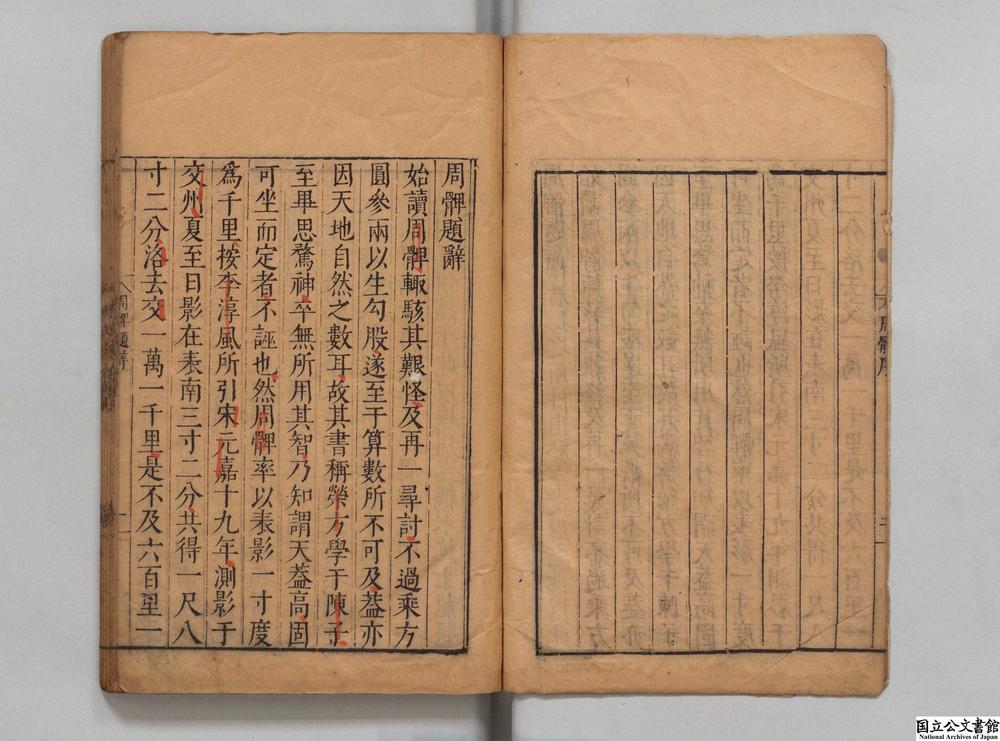 周髀題辭
始讀周髀輙駭其艱怪及再一尋討不過乘方
圓參兩以生勾股遂至于算數所不可及葢亦
因天地自然之數耳故其書稱榮方學于陳子
至畢思騖神卒無所用其智乃知謂天葢高固
可坐而定者不誣也然周髀率以表影一寸度
爲千里按李淳風所引宋元嘉十九年測影于
交州夏至日影在表南三寸二分共得一尺八
寸二分洛去交一萬一千里是不及六百里一
周髀題辭
一
周髀序
國立公文書館
National Archives of Japan